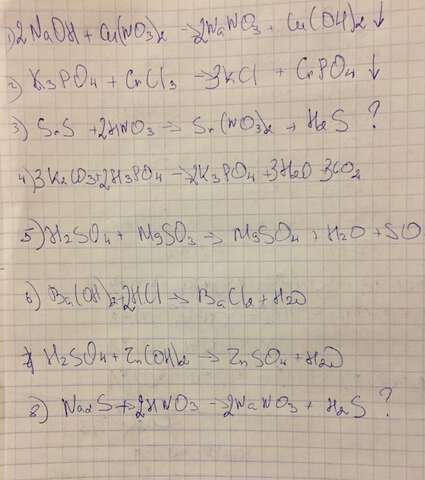 1) 2NaOH + Cu(NO3)2 → 2NaNO3 + Cu(OH)2 ↓
2) K3PO4 + CrCl3 → 3KCl + CrPO4 ↓
3) SrS + 2HNO3 → Sr(NO3)2 + H2S ?
4) 3K2CO3+2H3PO4 → 2K3PO4 + 3H2O 3CO2
5) H2SO4 + MgSO3 → MgSO4 + H2O + SO
6) Ba(OH)2+2HCl → BaCl2 + H2O
7 H2SO4 + Zn(OH)2 → ZnSO4 + H2O
8) Na2S + 2HNO3 → 2NaNO3 + H2S ?